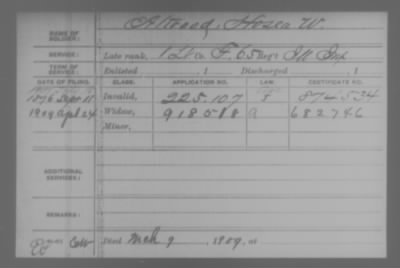 NAME OF SOLDIER: Atwood, Hosea W.
SERVICE: Late rank, 1 Lt Co. F, 65 Reg't Ill Inf
TERM OF SERVICE: Enlisted , 1 Discharged , 1
DATE OF FILING. CLASS. APPLICATION NO. LAW. CERTIFICATE NO.
1876 Sept 11 Invalid, 225.107 874534
1909 Apl 24 Widow, 918518 682746
Minor,
ADDITIONAL SERVICES:
REMARKS:
Died Mch 9, 1909, at